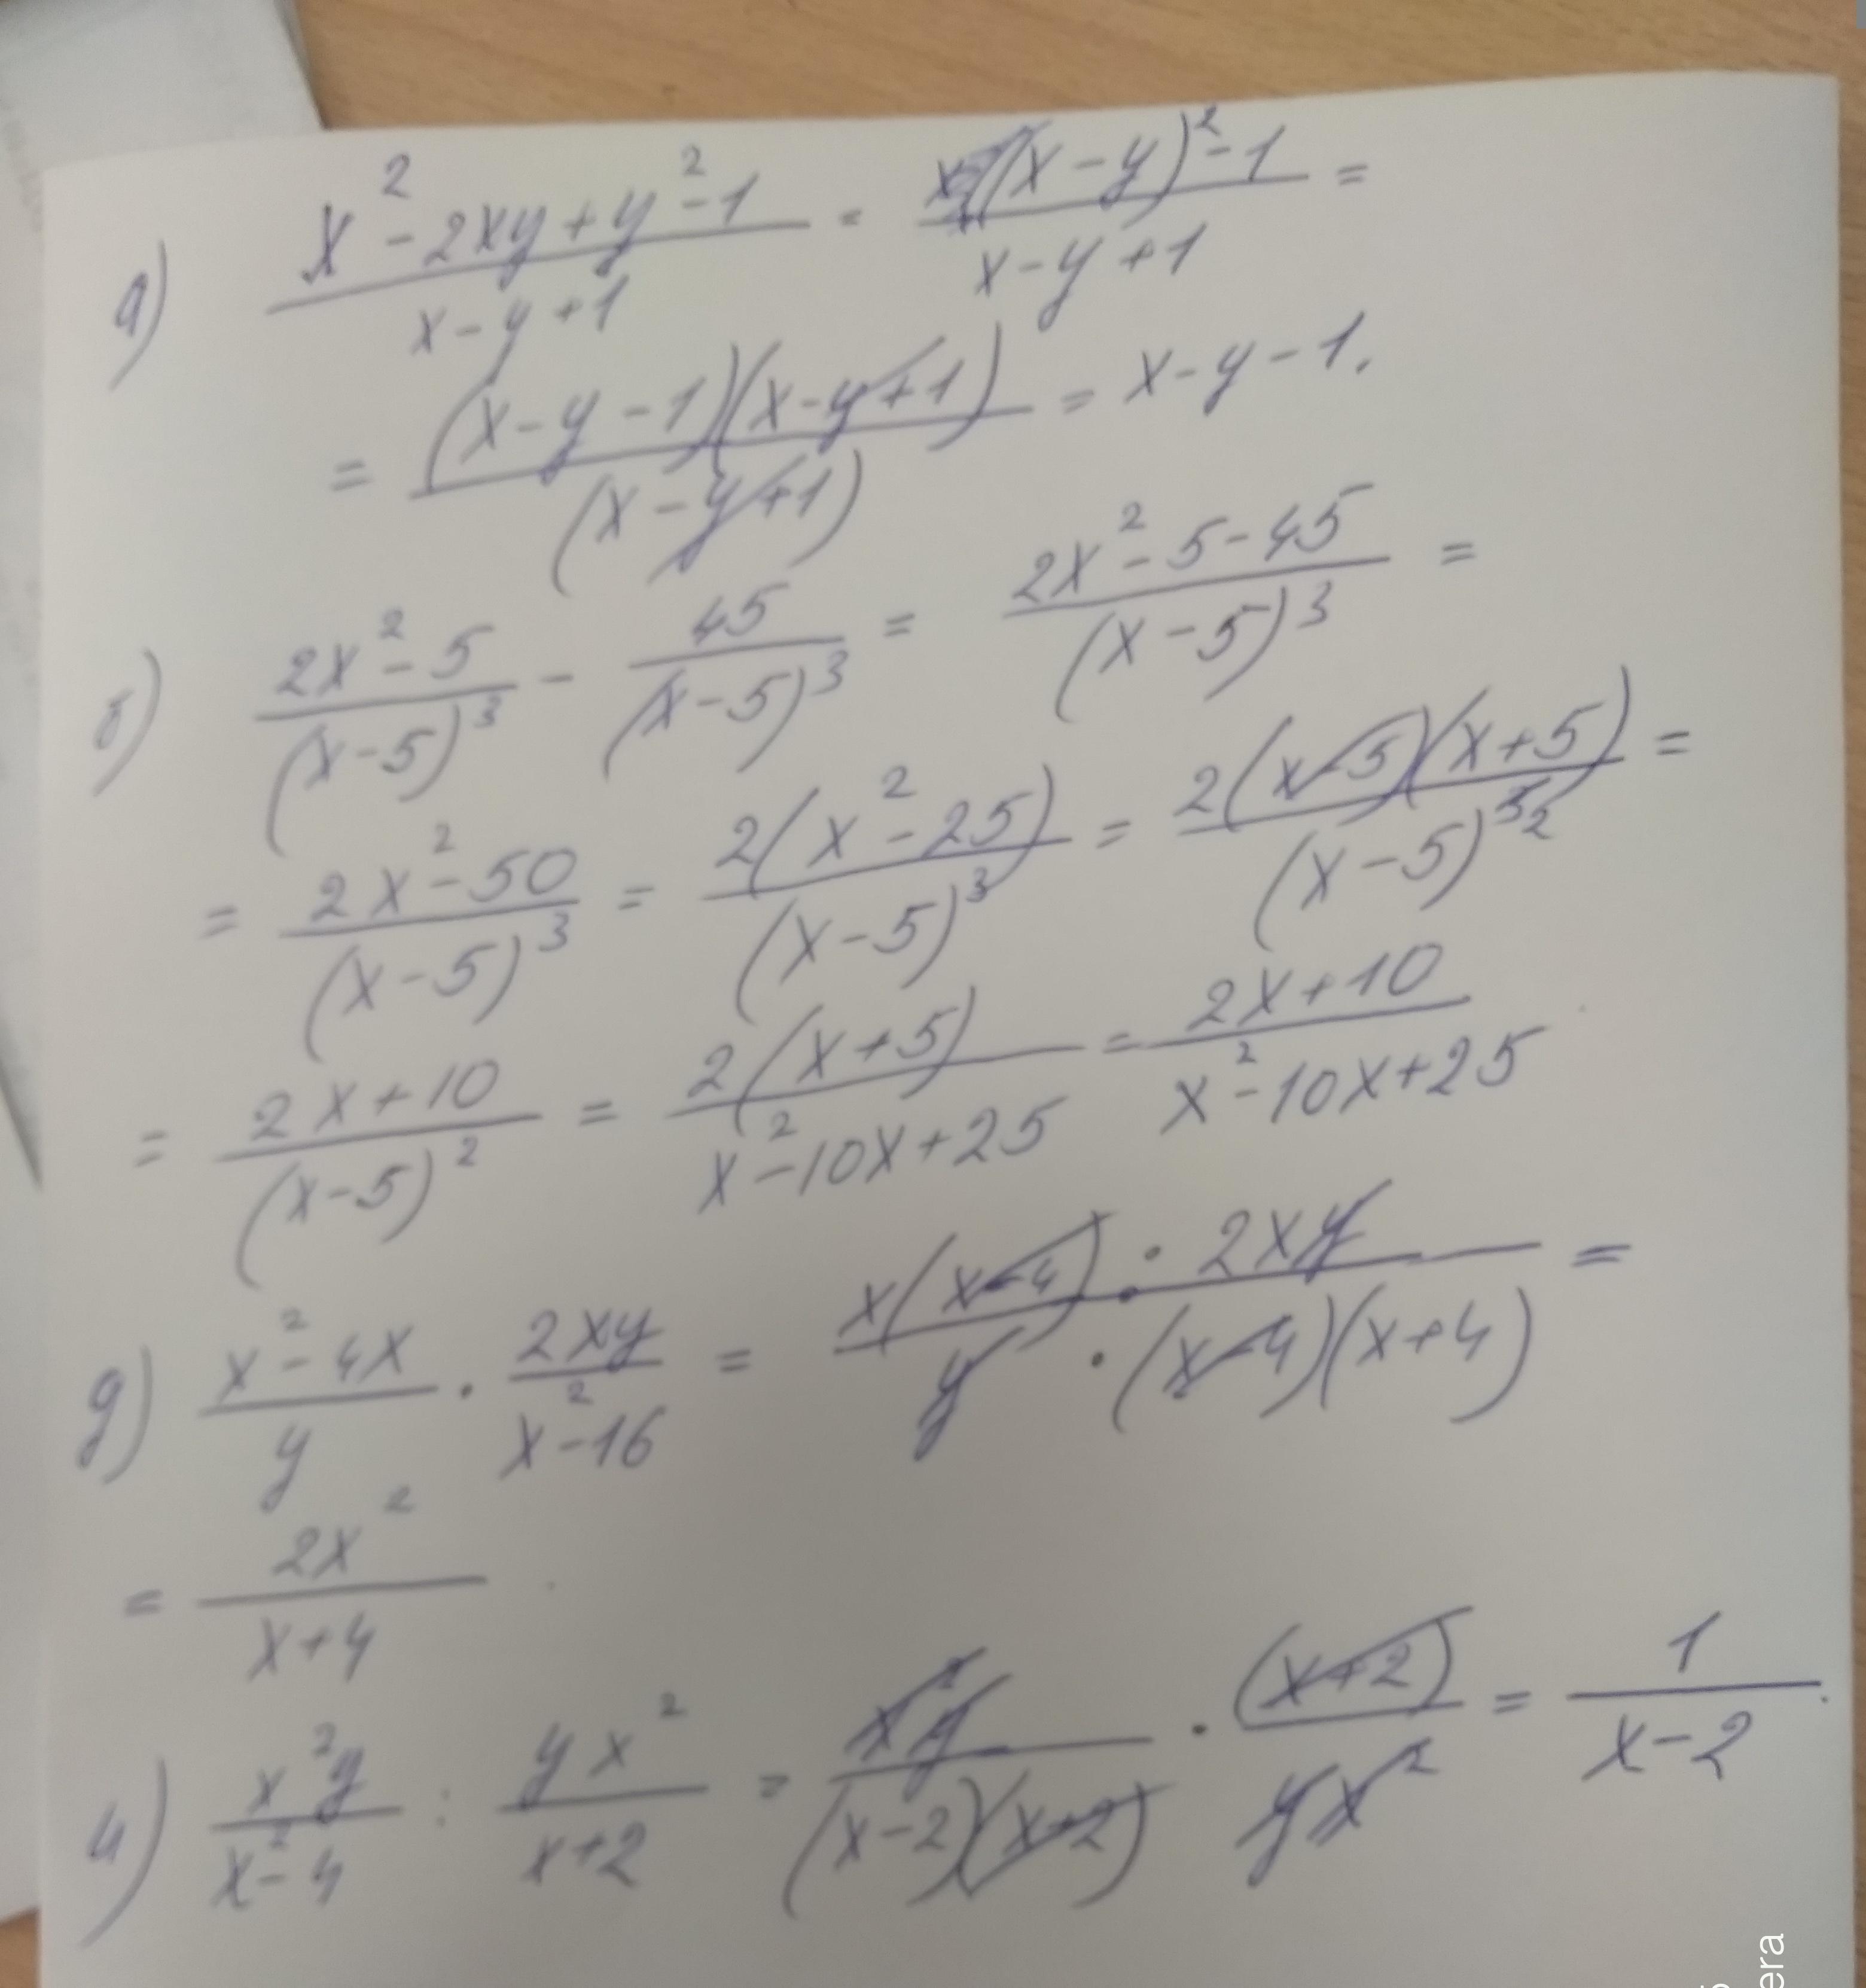 а) (x² - 2xy + y² - 1)/(x - y + 1) = ((x - y)² - 1)/(x - y + 1) =
= ((x - y - 1)(x - y + 1))/((x - y + 1)) = x - y - 1.
б) (2x² - 5)/(x - 5)³ - 45/(x - 5)³ = (2x² - 5 - 45)/(x - 5)³ =
= (2x² - 50)/(x - 5)³ = 2(x² - 25)/(x - 5)³ = 2(x - 5)(x + 5)/(x - 5)³ ² =
= (2x + 10)/(x - 5)² = 2(x + 5)/(x² - 10x + 25) = (2x + 10)/(x² - 10x + 25)
g) (x² - 4x)/y · 2xy/(x² - 16) = (x(x - 4) · 2xy)/(y · (x - 4)(x + 4)) =
= 2x²/(x + 4)
и) x²y/(x² - 4) : yx²/(x + 2) = x²y/((x - 2)(x + 2)) · (x + 2)/yx² = 1/(x - 2).